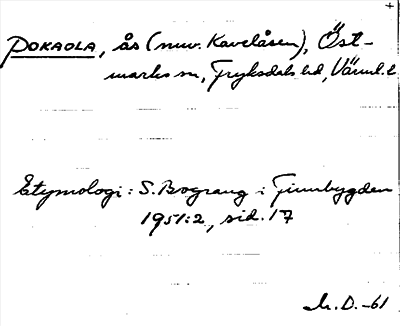 POKAOLA, ås (nuv. Kavelåsen), Öst-
marks sn, Fryksdals hd, Värml. l.
Etymologi: S. Bograng i Finnbygden
1951:2, sid. 17
M. D. -61